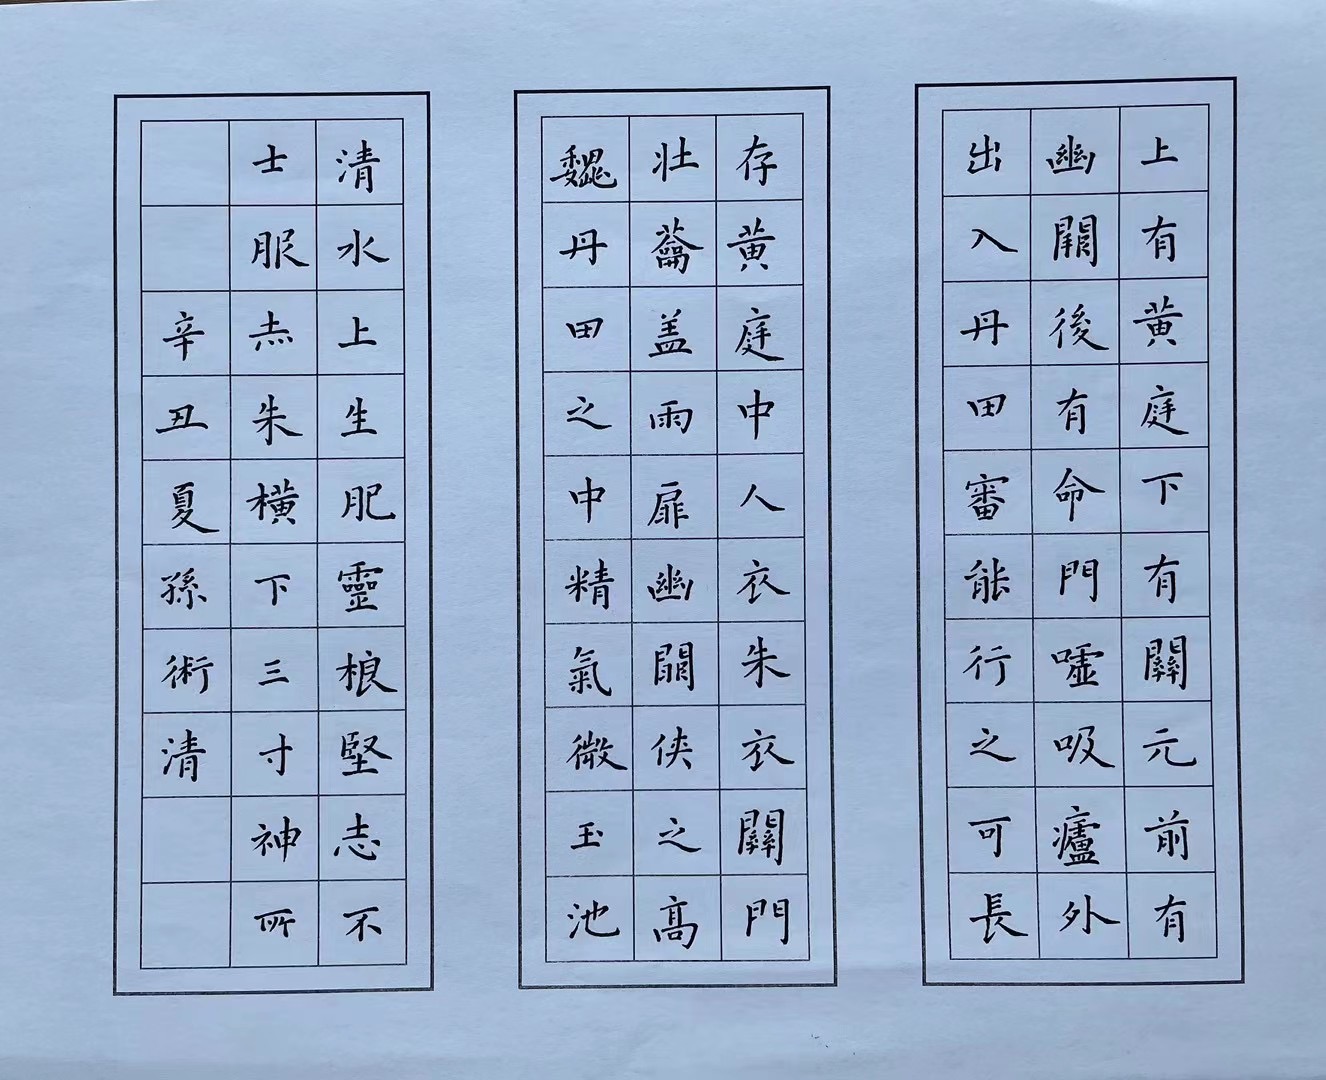 上有黄庭下有關元前有
幽闕後有命門嘘吸廬外
出入丹田審能行之可長
存黄庭中人衣朱衣關門
壮蘥盖兩扉幽闕侠之高
魏丹田之中精氣微玉池
清水上生肥靈根堅志不
士服赤朱橫下三寸神所
辛丑夏孫術清